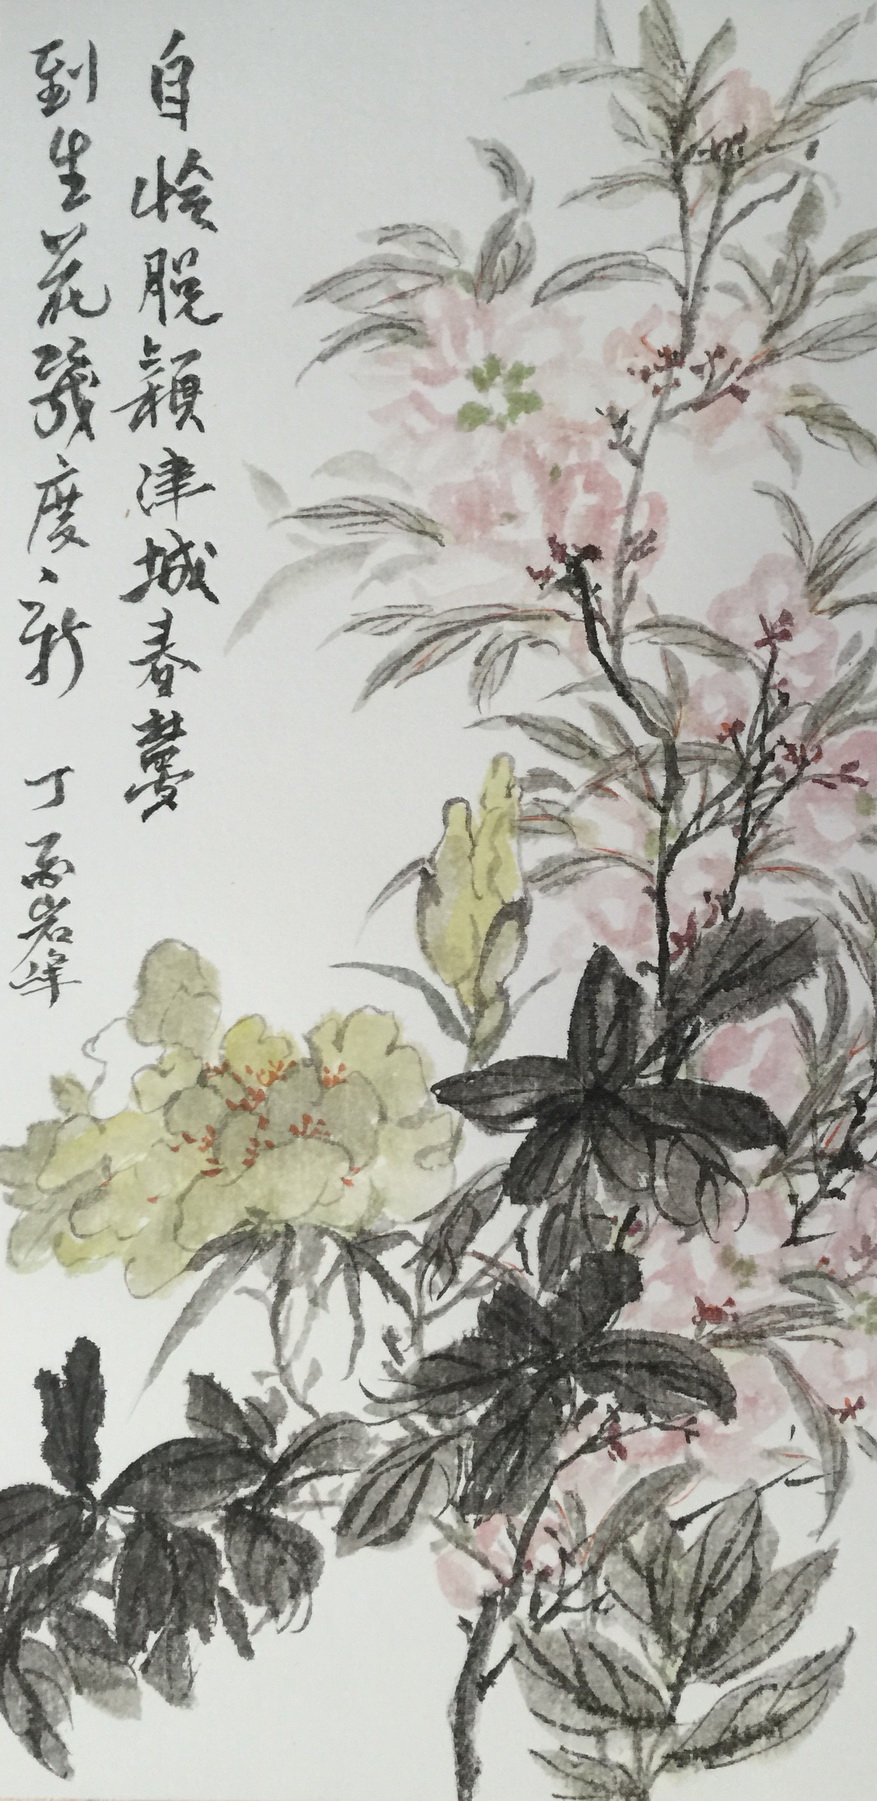 自怜脱穎津城春夢
到生花幾度新 丁酉岩峰